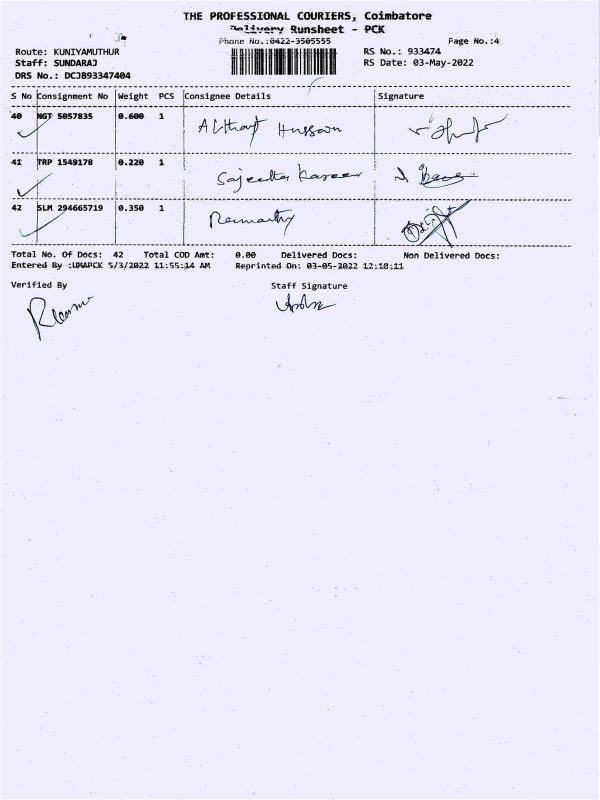 THE PROFESSIONAL COURIERS, Coimbatore
Delivery Runsheet - PCK
Phone No.:0422-3505555 Page No.:4
Route: KUNIYAMUTHUR RS No.: 933474
Staff: SUNDARAJ RS Date: 03-May-2022
DRS No.: DCJB93347404
S No Consignment No Weight PCS Consignee Details Signature
40 NGT 5057835 0.600 1 Hussain
41 TRP 1549178 0.220 1 Sajeetha Kareem
42 SLM 294665719 0.350 1
Total No. Of Docs: 42 Total COD Amt: 0.00 Delivered Docs: Non Delivered Docs:
Entered By :UMAPCK 5/3/2022 11:55:14 AM Reprinted On: 03-05-2022 12:10:11
Verified By Staff Signature